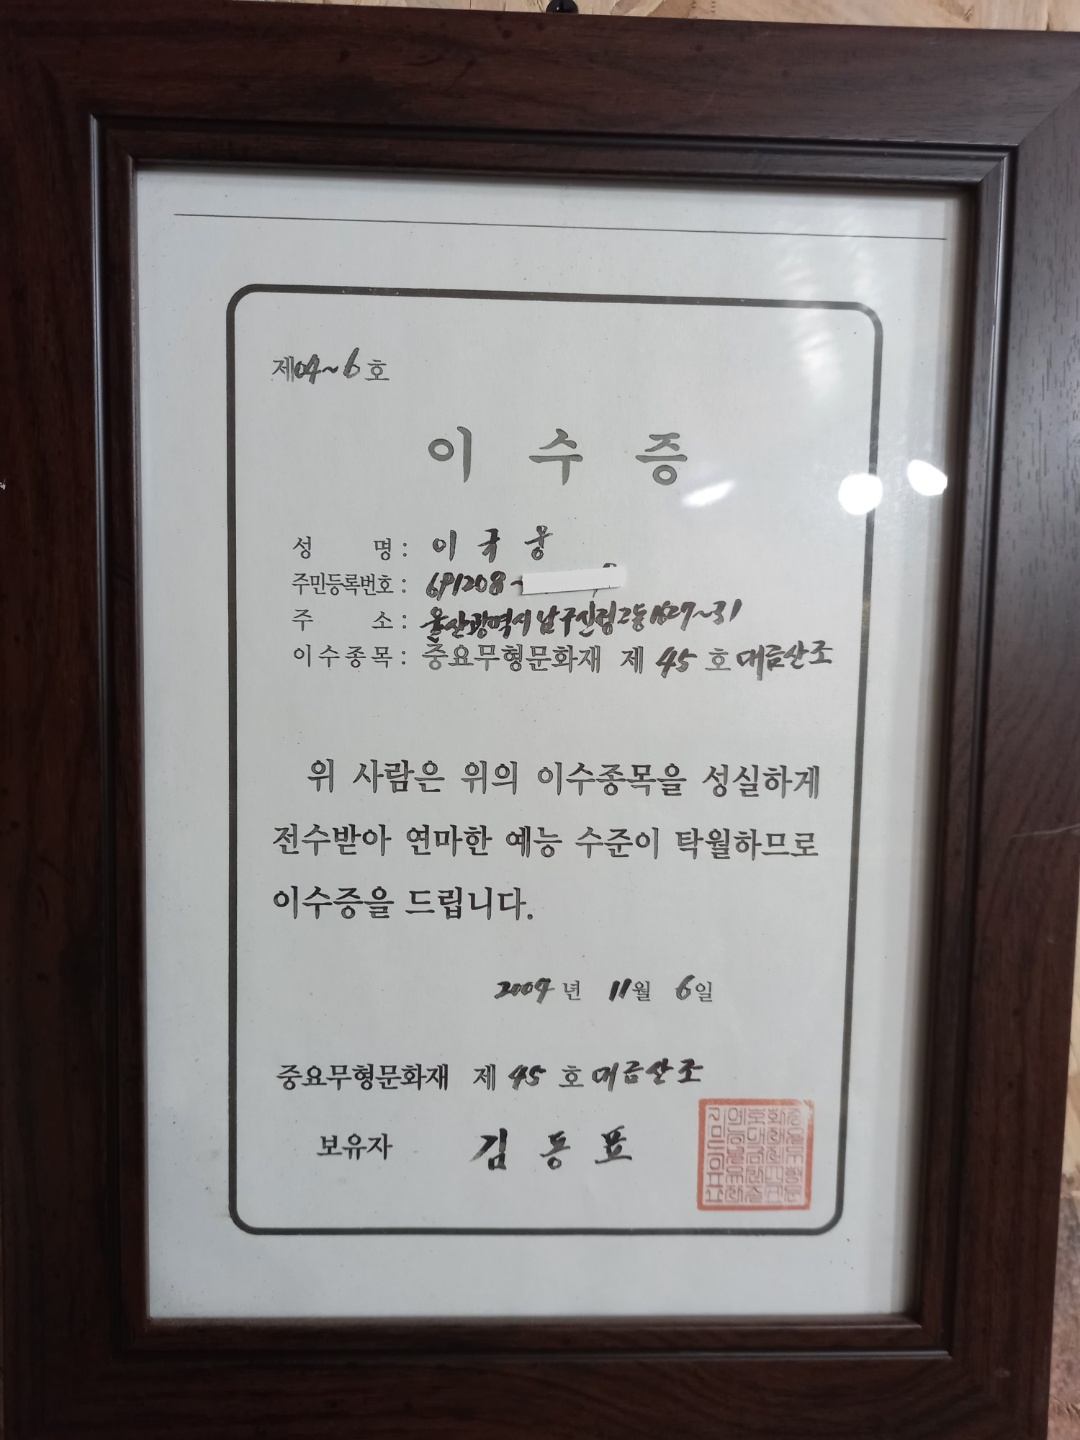 제04~6호
이 수 증
성 명 : 이 국 웅
주민등록번호 : 691208-
주 소 : 울산광역시 남구 신정2동 1627~31
이수종목 : 중요무형문화재 제 45 호 대금산조
위 사람은 위의 이수종목을 성실하게
전수받아 연마한 예능 수준이 탁월하므로
이수증을 드립니다.
2004년 11월 6일
중요무형문화재 제 45 호 대금산조
보유자 김 동 표